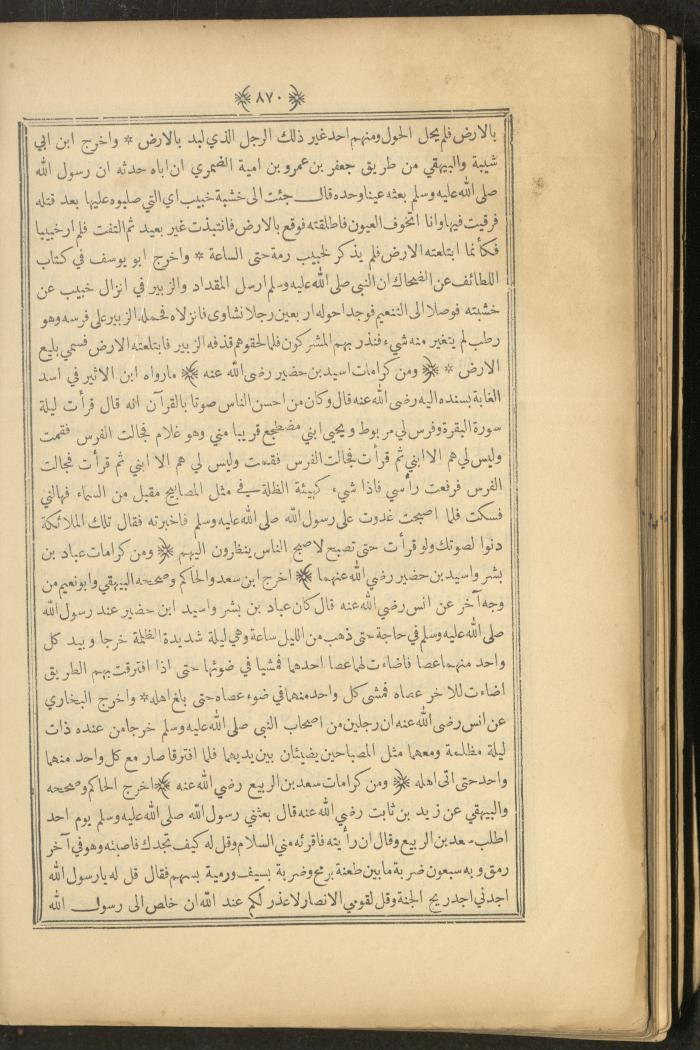 ﴿ ٨٧٠ ﴾
بالارض فلم يحل الحول ومنهم احد غير ذلك الرجل الذي لبد بالارض * واخرج ابن ابي
شيبة والبيهقي من طريق جعفر بن عمرو بن امية الضمري ان اباه حدثه ان رسول الله
صلى الله عليه وسلم بعثه عينا وحده قال جئت الى خشبة خبيب اي التي صلبوه عليها بعد قتله
فرقيت فيها وانا اتخوف العيون فاطلقته فوقع بالارض فانتبذت غير بعيد ثم التفت فلم ار خبيبا
فكأنما ابتلعته الارض فلم يذكر لخبيب رمة حتى الساعة * واخرج ابو يوسف في كتاب
اللطائف عن الضحاك ان النبي صلى الله عليه وسلم ارسل المقداد والزبير في انزال خبيب عن
خشبته فوصلا الى التنعيم فوجدا حوله اربعين رجلا نشاوى فانزلاه فحمله الزبير على فرسه وهو
رطب لم يتغير منه شيء فنذر بهم المشركون فلما لحقوهم قذفه الزبير فابتلعته الارض فسمي بليع
الارض * ﴿ ومن كرامات اسيد بن حضير رضى الله عنه ﴾ ما رواه ابن الاثير في اسد
الغابة بسنده اليه رضى الله عنه قال وكان من احسن الناس صوتا بالقرآن انه قال قرأت ليلة
سورة البقرة وفرس لي مربوط ويحيى ابني مضطجع قريبا مني وهو غلام فجالت الفرس فقمت
وليس لي هم الا ابني ثم قرأت فجالت الفرس فقمت وليس لي هم الا ابني ثم قرأت فجالت
الفرس فرفعت رأسي فاذا شيء كهيئة الظلة في مثل المصابيح مقبل من السماء فهالني
فسكت فلما اصبحت غدوت على رسول الله صلى الله عليه وسلم فاخبرته فقال تلك الملائكة
دنوا لصوتك ولو قرأت حتى تصبح لاصبح الناس ينظرون اليهم ﴿ ومن كرامات عباد بن
بشر واسيد بن حضير رضي الله عنهما ﴾ اخرج ابن سعد والحاكم وصححه البيهقي وابو نعيم من
وجه آخر عن انس رضى الله عنه قال كان عباد بن بشر واسيد ابن حضير عند رسول الله
صلى الله عليه وسلم في حاجة حتى ذهب من الليل ساعة وهي ليلة شديدة الظلمة خرجا وبيد كل
واحد منهما عصا فاضاءت لهما عصا احدهما فمشيا في ضوئها حتى اذا افترقت بهم الطريق
اضاءت للآخر عصاه فمشى كل واحد منهما في ضوء عصاه حتى بلغ اهله * واخرج البخاري
عن انس رضى الله عنه ان رجلين من اصحاب النبي صلى الله عليه وسلم خرجا من عنده ذات
ليلة مظلمة ومعهما مثل المصباحين يضيئان بين يديهما فلما افترقا صار مع كل واحد منهما
واحد حتى اتى اهله ﴿ ومن كرامات سعد بن الربيع رضي الله عنه ﴾ اخرج الحاكم وصححه
والبيهقي عن زيد بن ثابت رضي الله عنه قال بعثني رسول الله صلى الله عليه وسلم يوم احد
اطلب سعد بن الربيع وقال ان رأيته فاقرئه مني السلام وقل له كيف تجدك فاصبته وهو في آخر
رمق وبه سبعون ضربة ما بين طعنة برمح وضربة بسيف ورمية بسهم فقال قل له يا رسول الله
اجدني اجد ريح الجنة وقل لقومي الانصار لا عذر لكم عند الله ان خلص الى رسول الله